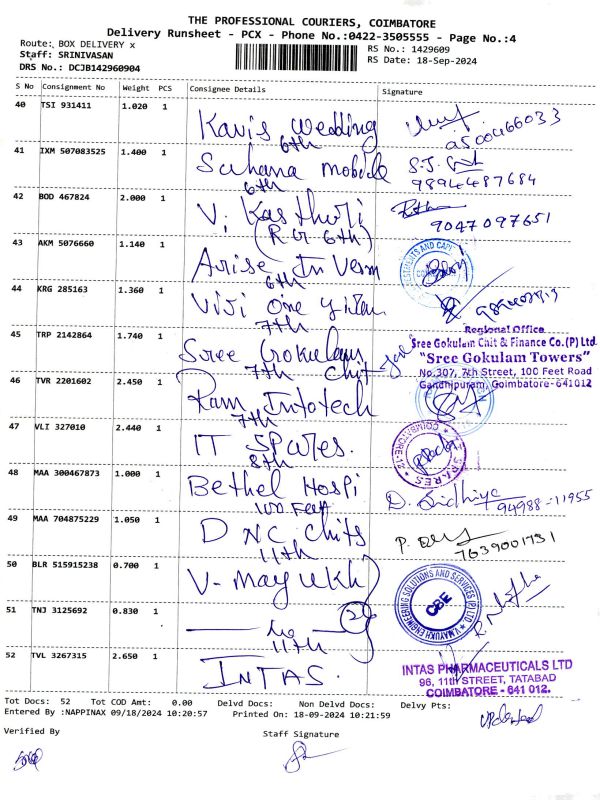 THE PROFESSIONAL COURIERS, COIMBATORE
Delivery Runsheet - PCX - Phone No.:0422-3505555 - Page No.:4
Route: BOX DELIVERY x
Staff: SRINIVASAN
DRS No.: DCJB142960904
RS No.: 1429609
RS Date: 18-Sep-2024
S No Consignment No Weight PCS Consignee Details Signature
40 TSI 931411 1.020 1
Kavis Wedding
6th
41 IXM 507083525 1.400 1
Suhana mobile
6th
9894487684
42 BOD 467824 2.000 1
V. Kasthuri
(R.G 6th)
9047097651
43 AKM 5076660 1.140 1
Arise In Verm
6th
44 KRG 285163 1.360 1
Viji One
7th
45 TRP 2142864 1.740 1
Sree Gokulam
7th Chit
Regional Office
Sree Gokulam Chit & Finance Co.(P) Ltd.
"Sree Gokulam Towers"
No.307, 7th Street, 100 Feet Road
Gandhipuram, Coimbatore-641012
46 TVR 2201602 2.450 1
Ram Infotech
7th
47 VLI 327010 2.440 1
IT Spares.
8th
48 MAA 300467873 1.000 1
Bethel Hospi
100 Feet
94988-11955
49 MAA 704875229 1.050 1
DNC Chits
11th
7639001731
50 BLR 515915238 0.700 1
V-Mayukh
V.MAYUKH ENGINEERING SOLUTIONS AND SERVICES (P) LTD
CBE
51 TNJ 3125692 0.830 1
11th
52 TVL 3267315 2.650 1
INTAS.
INTAS PHARMACEUTICALS LTD
96, 11th STREET, TATABAD
COIMBATORE - 641 012.
Tot Docs: 52 Tot COD Amt: 0.00 Delvd Docs: Non Delvd Docs: Delvy Pts:
Entered By :NAPPINAX 09/18/2024 10:20:57 Printed On: 18-09-2024 10:21:59
Verified By
Staff Signature